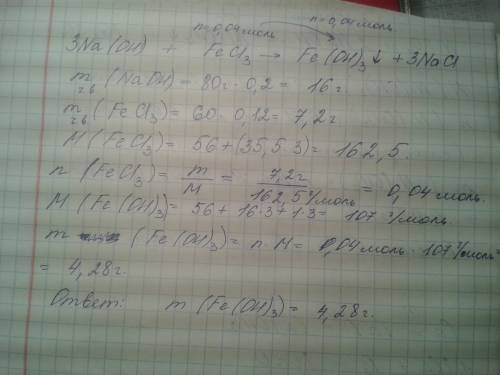 n=0,04моль n=0,04моль
3Na(OH) + FeCl₃ → Fe(OH)₃↓ + 3NaCl
m чв (NaOH) = 80г · 0,2 = 16 г
m чв (FeCl₃) = 60 · 0,12 = 7,2 г
M (FeCl₃) = 56 + (35,5·3) = 162,5.
n (FeCl₃) = m/M = 7,2г/162,5 г/моль = 0,04 моль.
M (Fe(OH)₃) = 56 + 16·3 + 1·3 = 107 г/моль.
m (Fe(OH)₃) = n · M = 0,04моль · 107 г/моль =
= 4,28 г.
Ответ: m (Fe(OH)₃) = 4,28г.